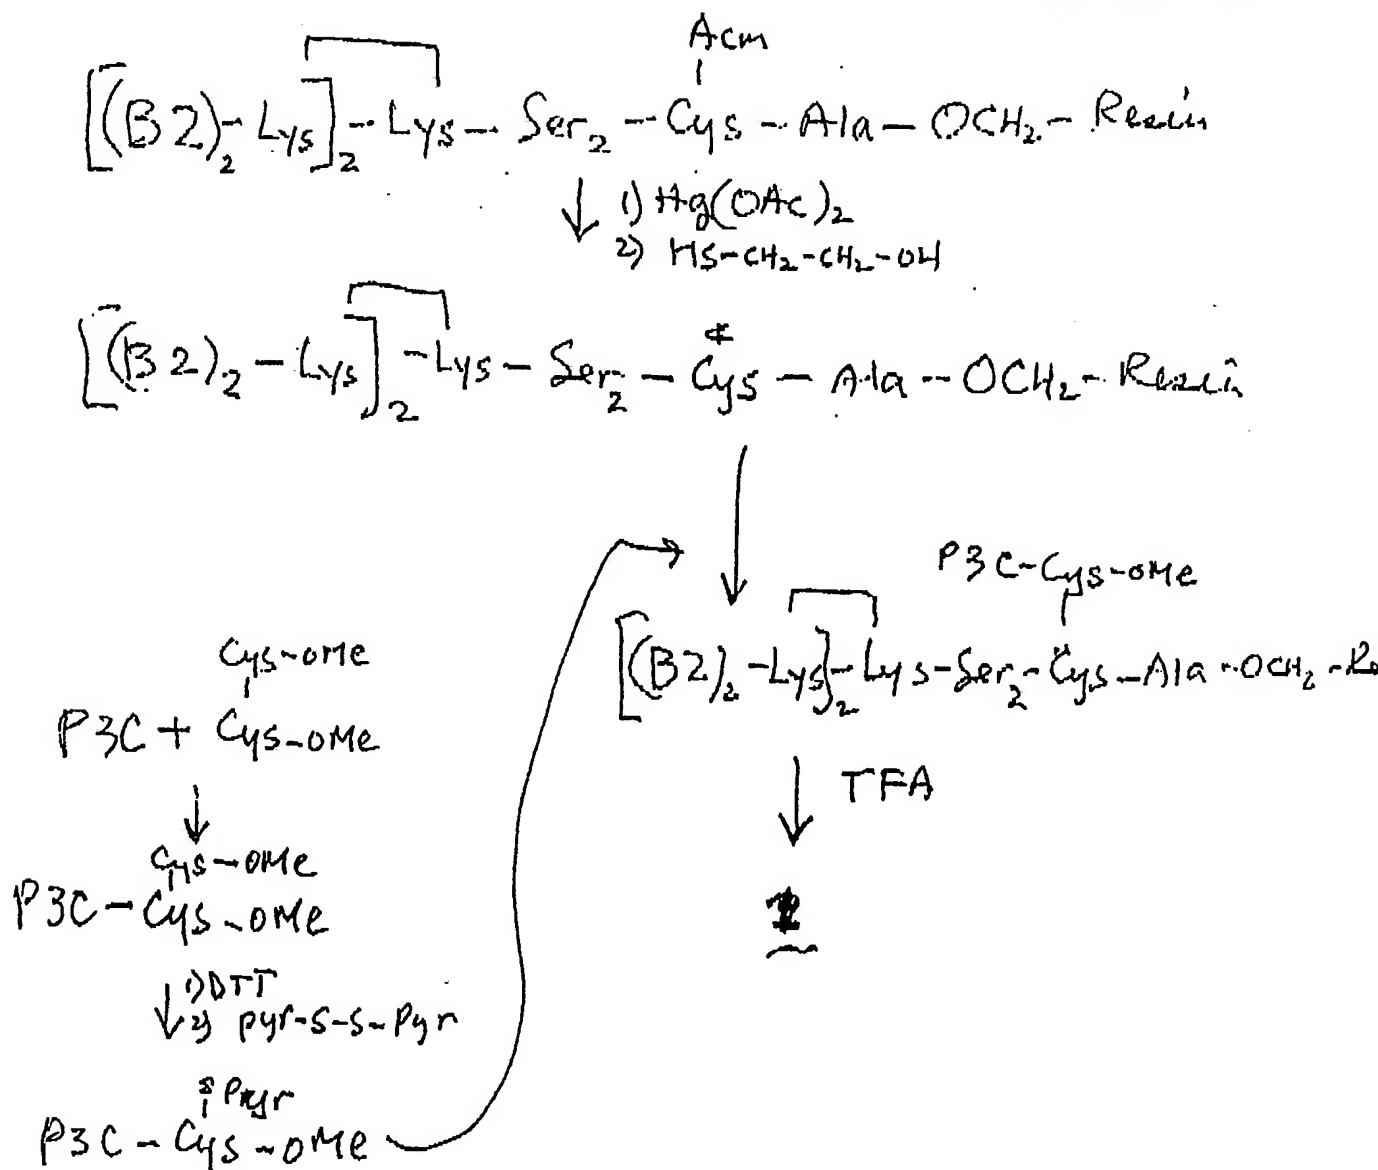 Acm
[(B2)₂-Lys]₂-Lys-Ser₂-Cys-Ala-OCH₂-Resin
1) Hg(OAc)₂
2) HS-CH₂-CH₂-OH
[(B2)₂-Lys]₂-Lys-Ser₂-Cys-Ala-OCH₂-Resin
P3C-Cys-OMe
[(B2)₂-Lys]₂-Lys-Ser₂-Cys-Ala-OCH₂-Re
TFA
1
Cys-OMe
P3C + Cys-OMe
Cys-OMe
P3C-Cys-OMe
1) DTT
2) Pyr-S-S-Pyr
P3C-Cys-OMe